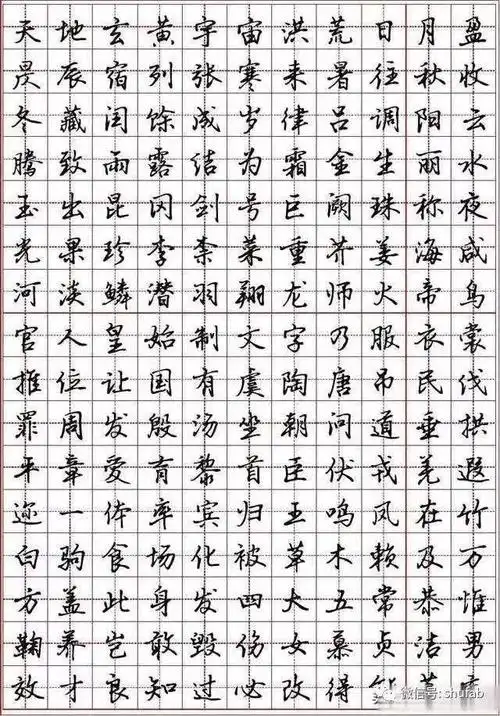 天地玄黄宇宙洪荒日月盈
昃辰宿列张寒来暑往秋收
冬藏闰馀成岁律吕调阳云
腾致雨露结为霜金生丽水
玉出昆冈剑号巨阙珠称夜
光果珍李柰菜重芥姜海咸
河淡鳞潜羽翔龙师火帝鸟
官人皇始制文字乃服衣裳
推位让国有虞陶唐吊民伐
罪周发殷汤坐朝问道垂拱
平章爱育黎首臣伏戎羌遐
迩一体率宾归王鸣凤在竹
白驹食场化被草木赖及万
方盖此身发四大五常恭惟
鞠养岂敢毁伤女慕贞洁男
效才良知过必改得
微信号: shufab